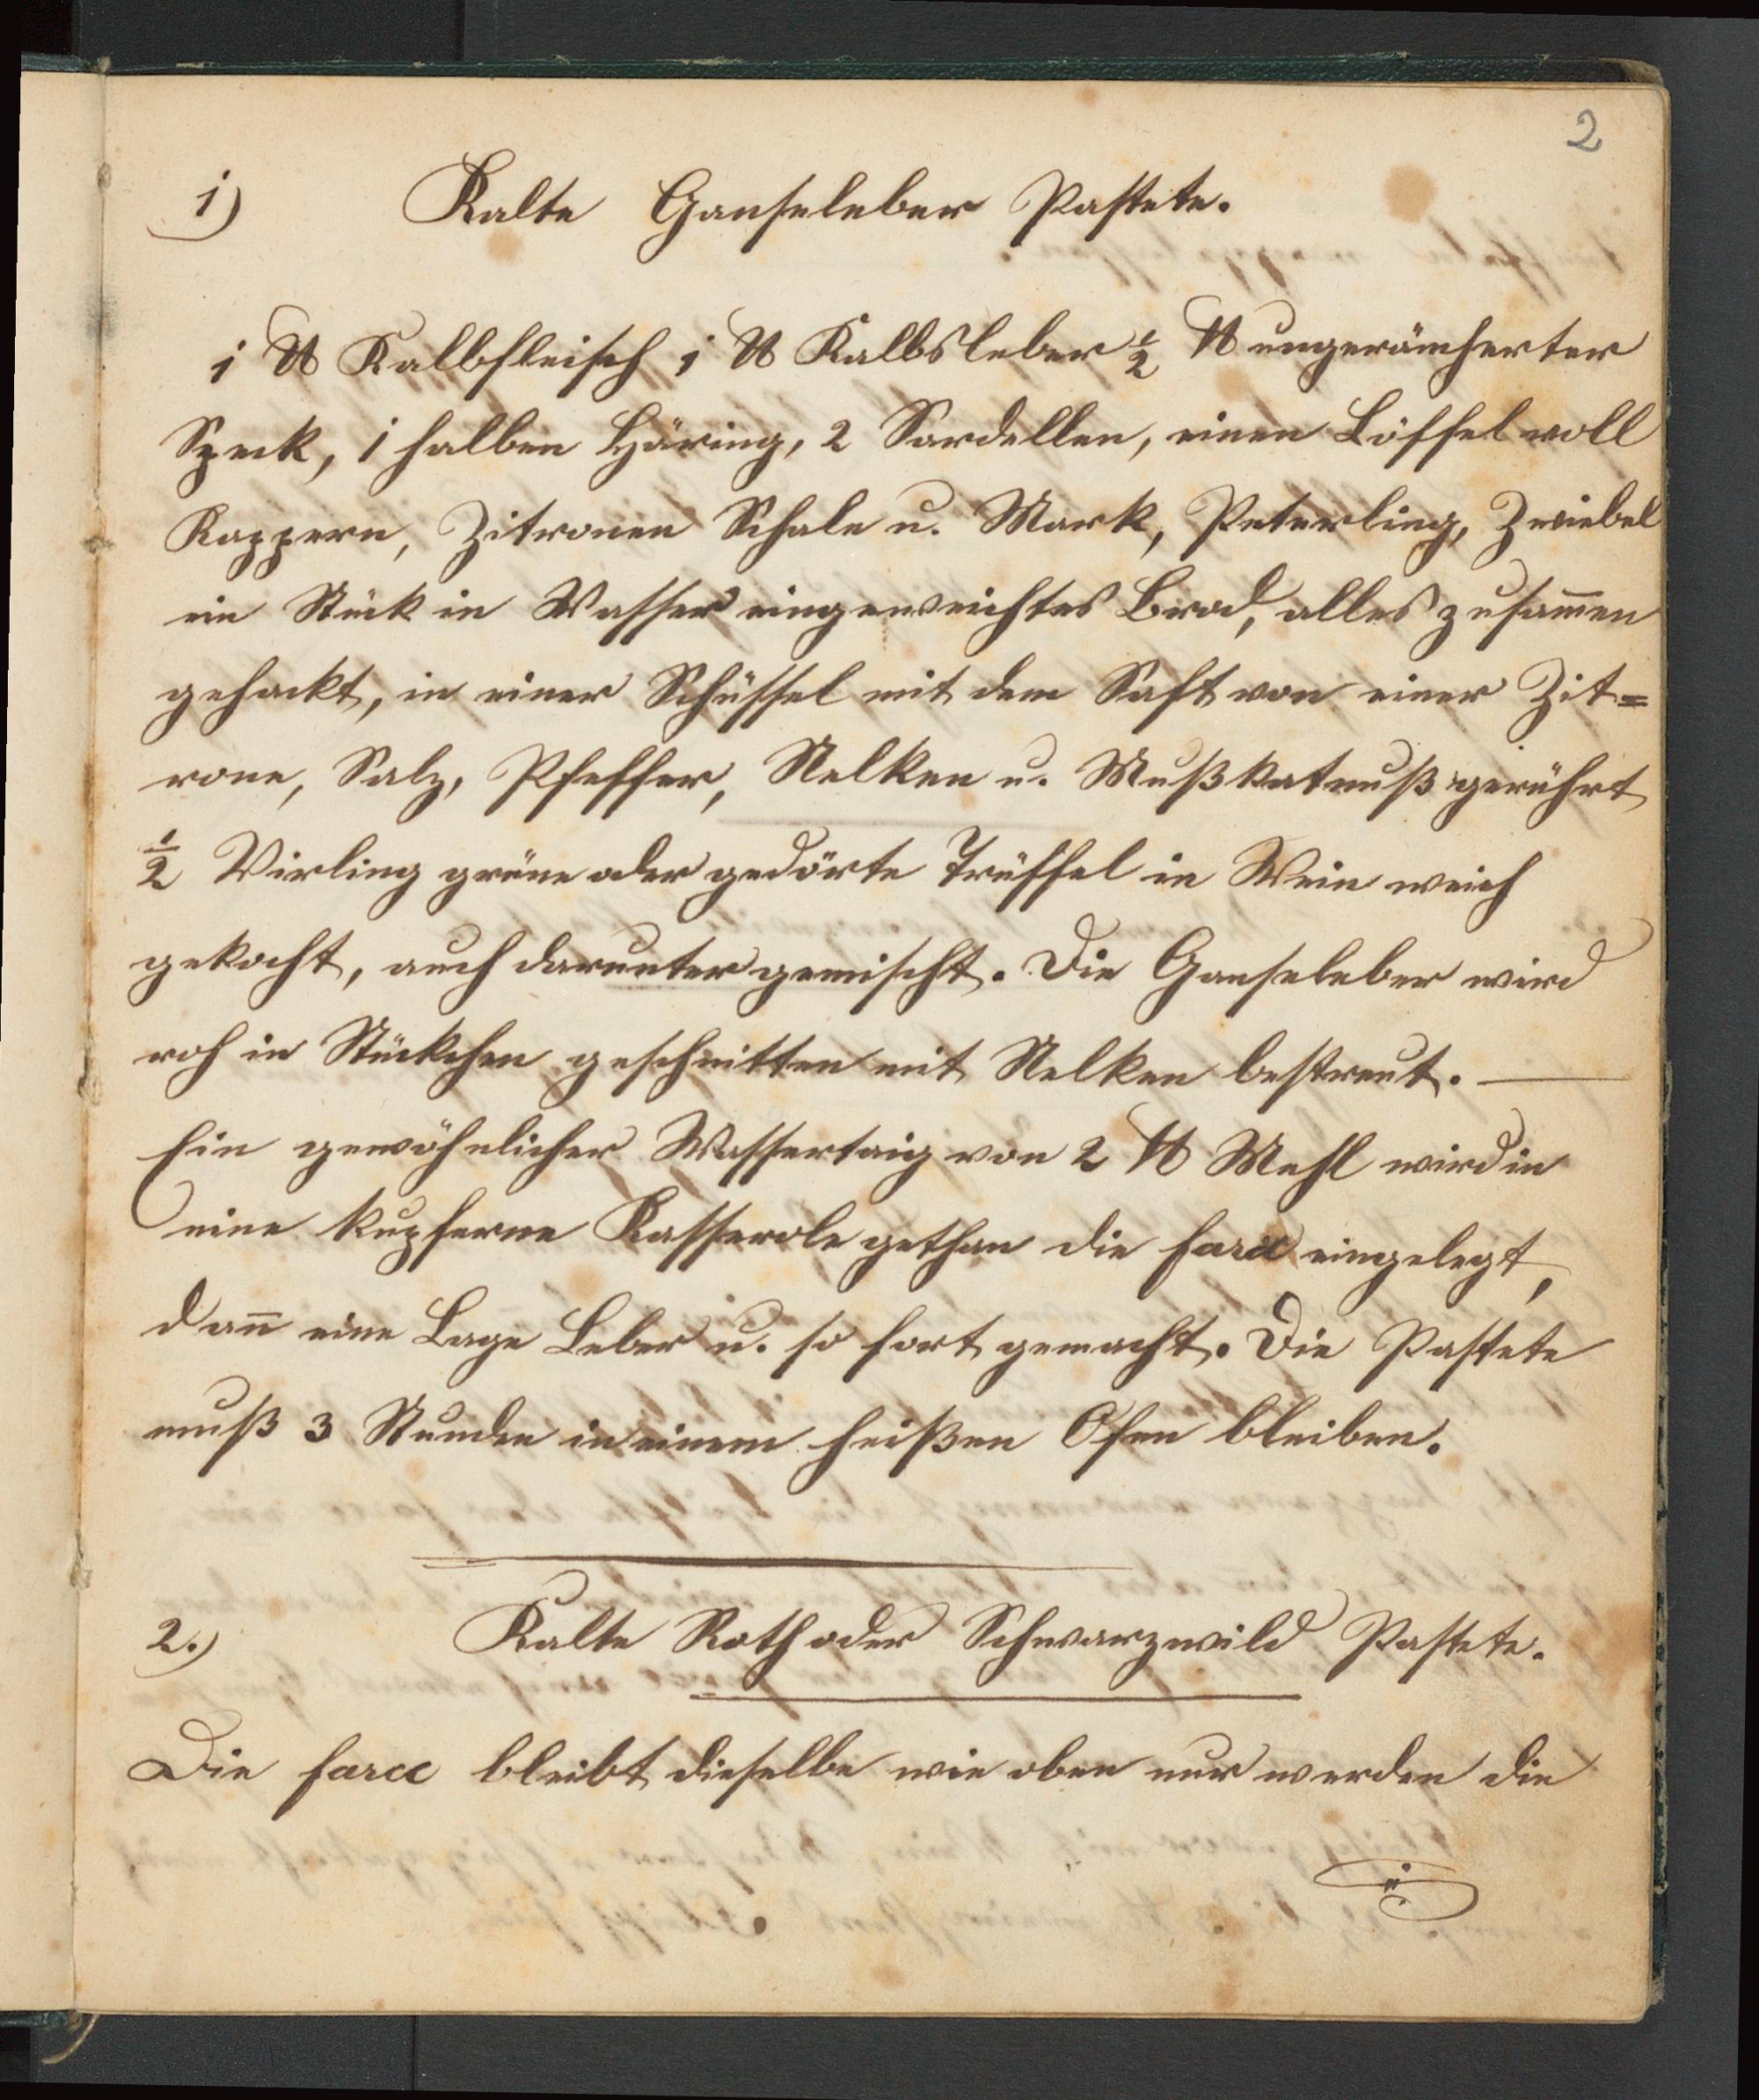 2
1) Kalte Ganseleber Pastete.
1 ℔ Kalbfleisch 1 ℔ Kalbsleber ½ ℔ ungeräucherter
Speck, 1 halben Häring, 2 Sardellen, einen Löffel voll
Kappern, Zitronen Schale u. Mark, Peterling, Zwiebel
ein Stück in Wasser eingeweichtes Brod, alles zusam̄en
gehackt, in einer Schüssel mit dem Saft von einer Zit=
rone, Salz, Pfeffer, Nelken u. Mußkatnuß gerührt
½ Virling grüne oder gedörte Trüffel in Wein weich
gekocht, auch darunter gemischt. Die Ganseleber wird
roh in Stückchen geschnitten mit Nelken bestreut. —
Ein gewöhnlicher Wassertaig von 2 ℔ Mehl wird in
eine kupferne Kasserole gethan die farce eingelegt,
dan̄ eine Lage Leber u. so fort gemacht. Die Pastete
muß 3 Stunden in einem heißen Ofen bleiben.
2.) Kalte Roth oder Schwarzwild Pastete.
Die farce bleibt dieselbe wie oben nur werden die